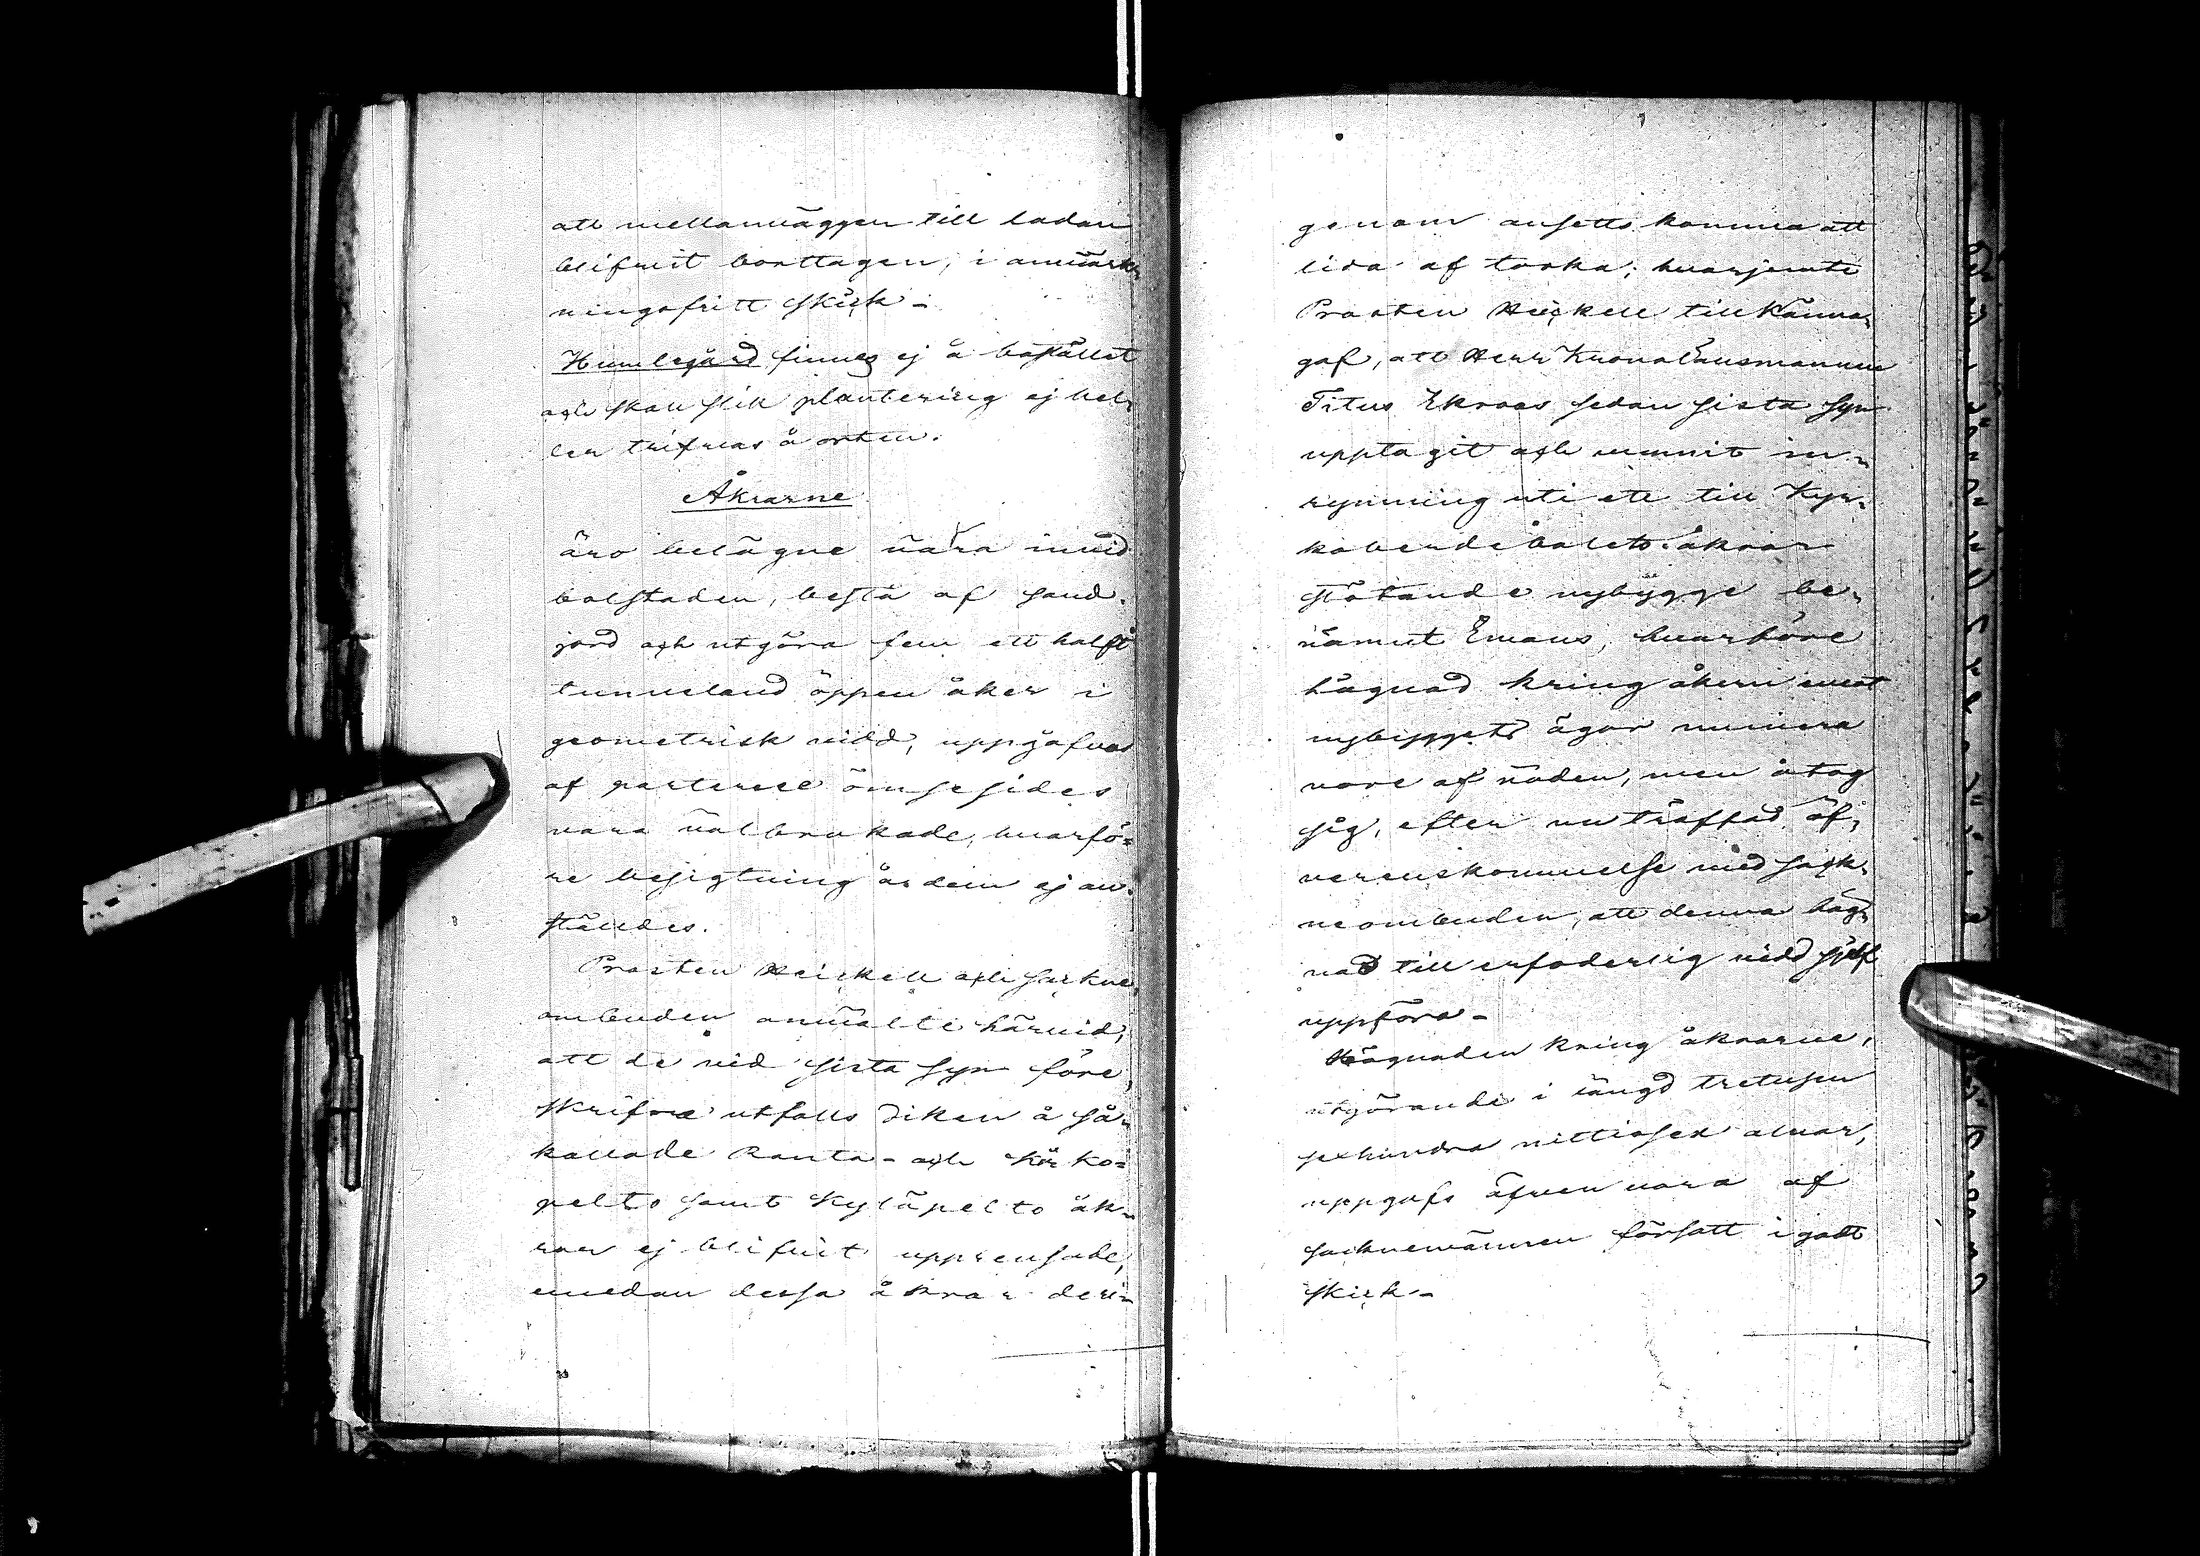 att mellanväggen till ladan
blifvit borttagen, i anmärk-
ningsfritt skick.-
Humlegård finnes ej å bostället
och skall slik plantering ej hel-
ler trifvas å orten.
Åkrarne
äro belägne nära invid
bolstaden, bestå af sand-
jord och utgöra fem ett halft
tunneland öppen åker i
geometrisk vidd, uppgåfvos
af parterne ömsesides
vara väl brukade, hvarfö-
re besigtning å dem ej an-
ställdes.
Prosten Heickell och sockne-
ombuden anmälte härvid,
att de vid sista syn före-
skrifne utfalls diken å så-
kallade Ranta- och
pelto samt Kyläpelto åk-
rar ej blifvit upprensade,
emedan dessa åkrar der-
genom ansetts komma att
lida af torka; hvarjemte
Prosten Heickell tillkänna-
gaf, att Herr Kronolänsmannen
Titus Ekroos sedan sista syn
upptagit och vunnit in-
rymning uti ett till Kyr-
koherdebolets åkrar
stötande nybygge be-
nämnt Emaus, hvarföre
hägnad kring åkern emot
nybyggets ägor numera
vore af nöden, men åtog
sig, efter nu träffad öf-
verenskommelse med sock-
neombuden, att denna häg-
nad till erfoderlig vidd sjelf
uppföra.-
Hägnaden kring åkrarne,
utgörande i längd tretusen
sexhundra nittiosex alnar,
uppgafs äfven vara af
socknemännen försatt i godt
skick.-